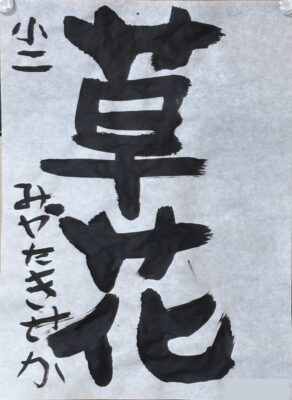 草花
小二
みやたきせか